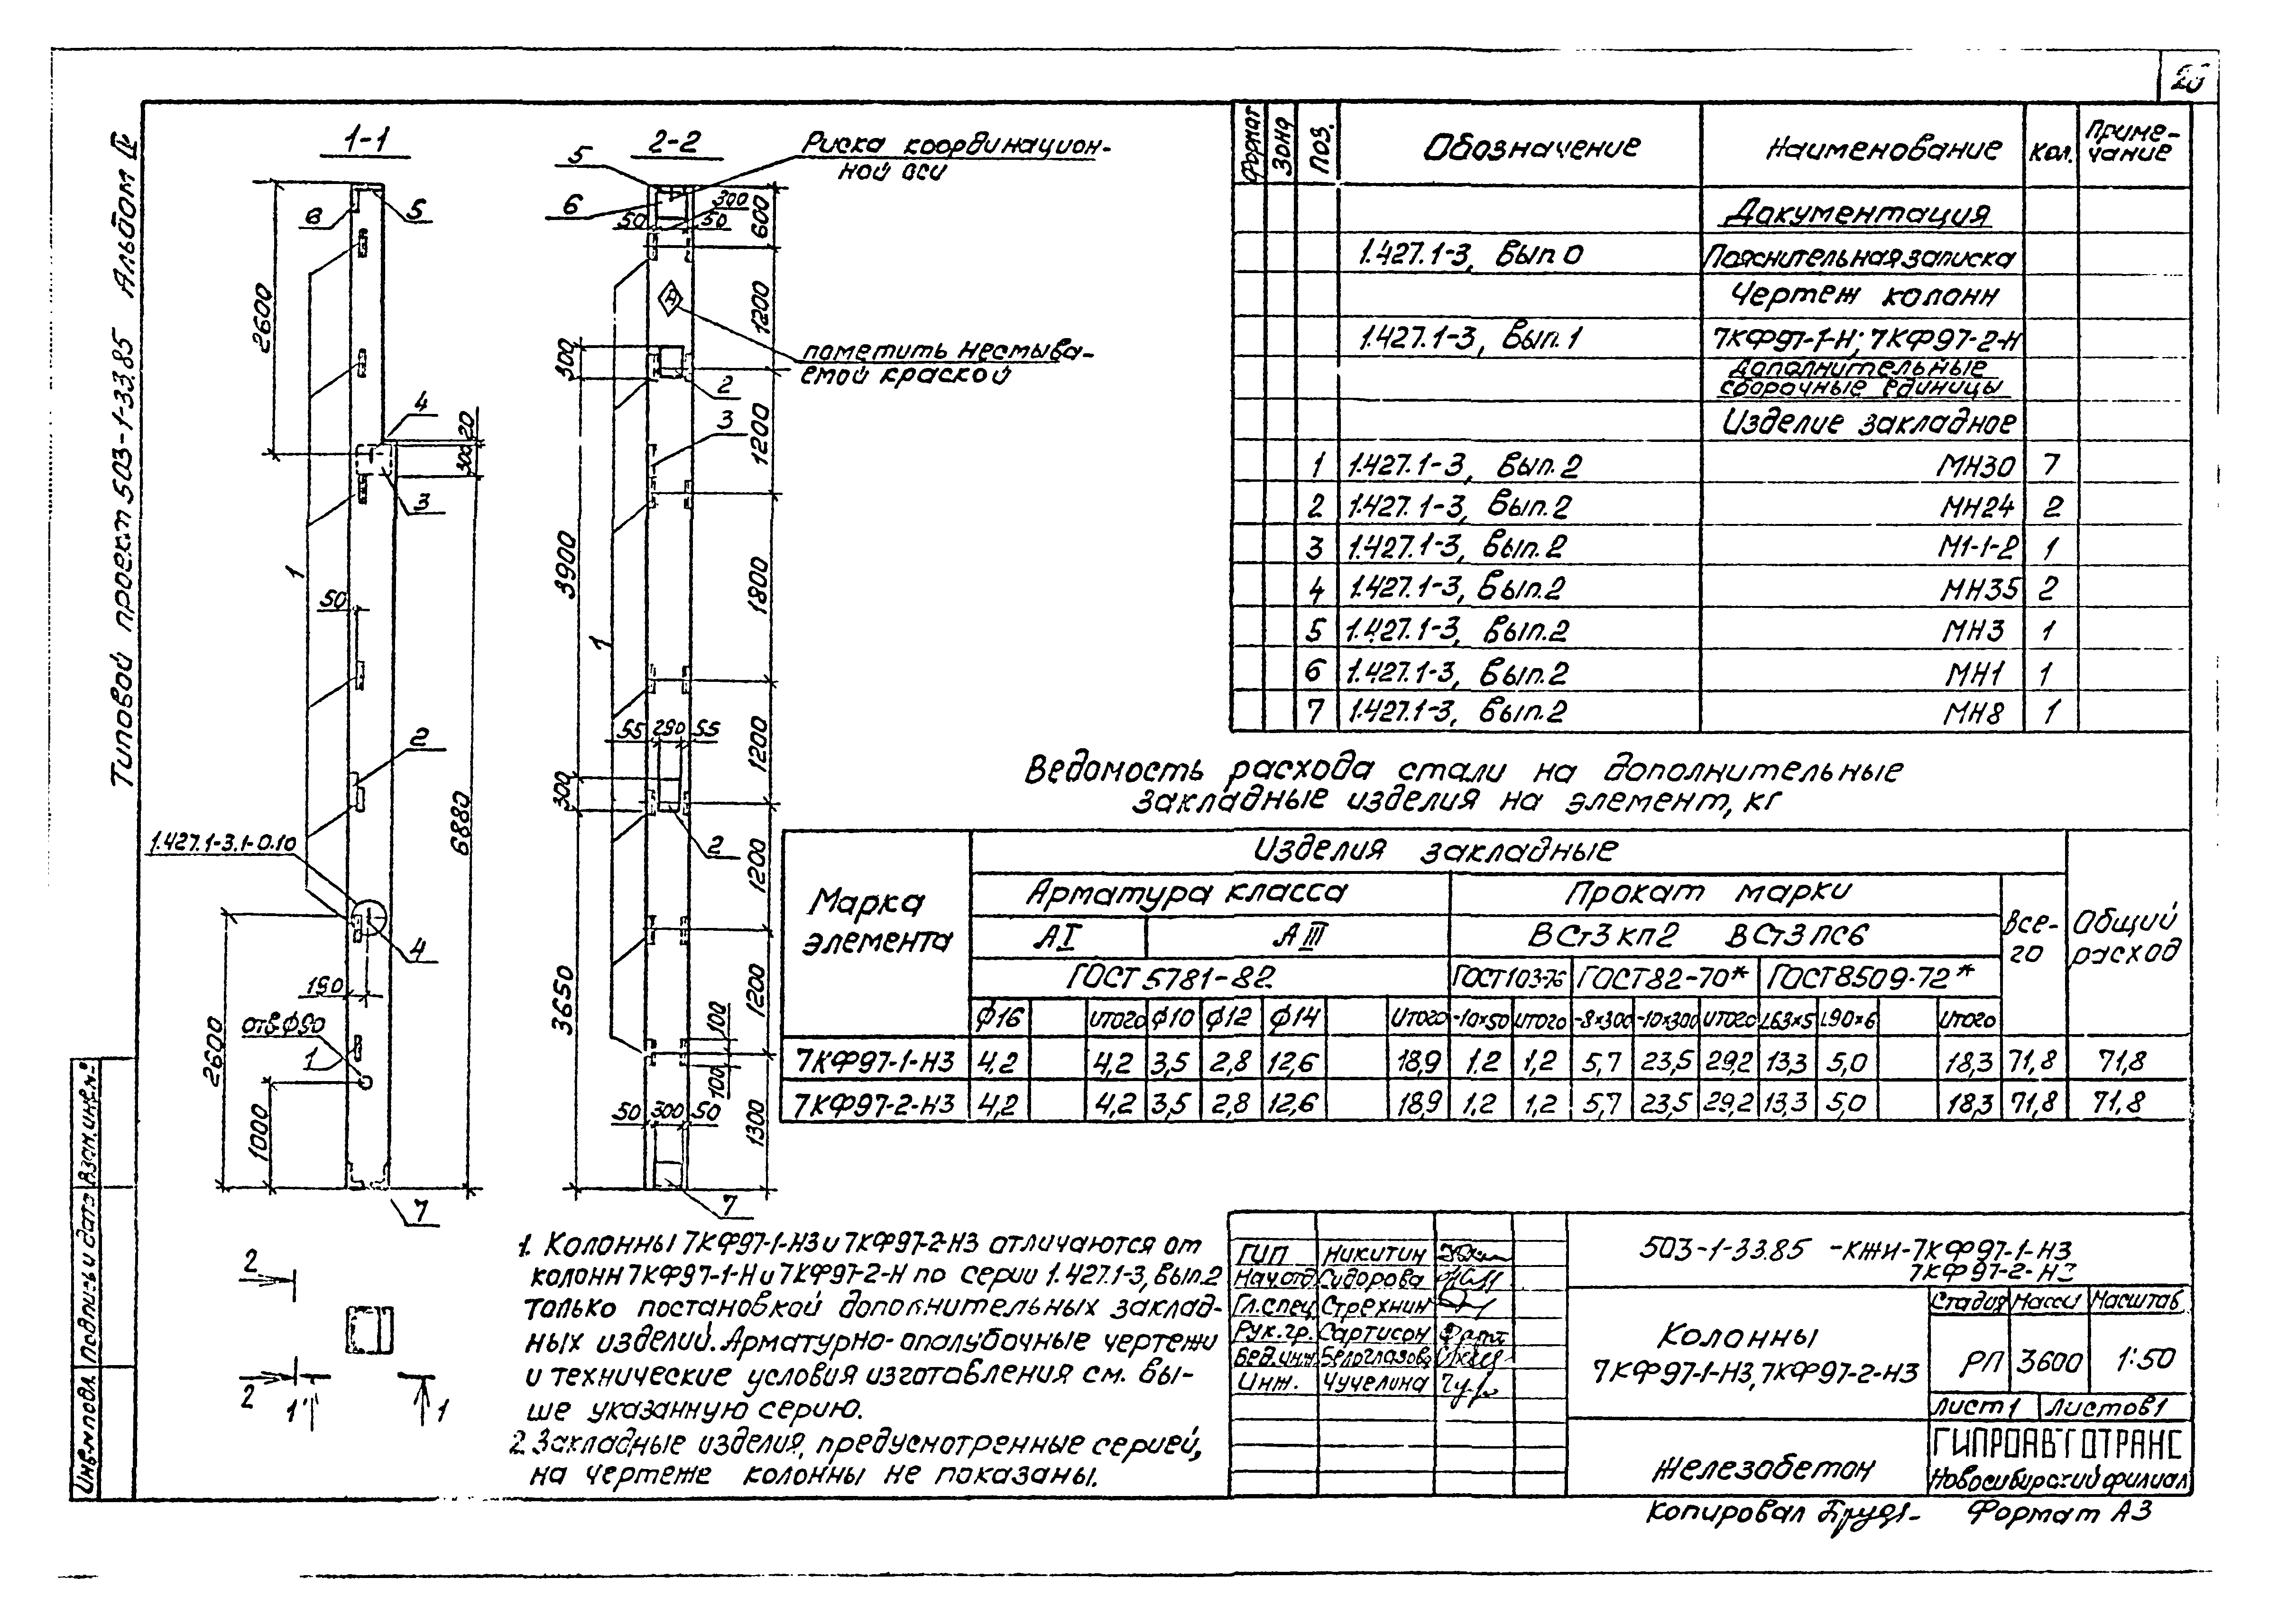 26
Типовой проект 503-1-33.85 Альбом IV
1-1
2-2
Риска координацион-
ной оси
пометить несмыва-
емой краской
6
5
2600
4
20
300
3
1
50
2
6880
1.427.1-3.1-0.10
4
190
отв.ф90
1
2600
1000
7
5
6
50
300
50
600
1200
300
2
3
1200
3900
1800
1
55
290
55
1200
300
2
1200
3650
1200
100
100
50 300 50
1300
7
2
2
1
1
Формат
Зона
Поз.
Обозначение
Наименование
Кол.
Приме-
чание
Документация
1.427.1-3, Вып.0 Пояснительная записка
Чертеж колонн
1.427.1-3, Вып.1 7КФ97-1-Н; 7КФ97-2-Н
Дополнительные
сборочные единицы
Изделие закладное
1 1.427.1-3, Вып.2 МН30 7
2 1.427.1-3, Вып.2 МН24 2
3 1.427.1-3, Вып.2 М1-1-2 1
4 1.427.1-3, Вып.2 МН35 2
5 1.427.1-3, Вып.2 МН3 1
6 1.427.1-3, Вып.2 МН1 1
7 1.427.1-3, Вып.2 МН8 1
Ведомость расхода стали на дополнительные
закладные изделия на элемент, кг
Марка
элемента
Изделия закладные
Арматура класса
Прокат марки
Все-
го
Общий
расход
АI АIII ВСт3кп2 ВСт3пс6
ГОСТ 5781-82 ГОСТ103-76 ГОСТ82-70* ГОСТ8509-72*
ф16 Итого ф10 ф12 ф14 Итого -10×50 Итого -8×300 -10×300 Итого L63×5 L90×6 Итого
7КФ97-1-Н3 4,2 4,2 3,5 2,8 12,6 18,9 1.2 1,2 5,7 23,5 29,2 13,3 5,0 18,3 71,8 71,8
7КФ97-2-Н3 4,2 4,2 3,5 2,8 12,6 18,9 1,2 1,2 5,7 23,5 29,2 13,3 5,0 18,3 71,8 71,8
1. Колонны 7КФ97-1-Н3 и 7КФ97-2-Н3 отличаются от
колонн 7КФ97-1-Н и 7КФ97-2-Н по серии 1.427.1-3, Вып.2
только постановкой дополнительных заклад-
ных изделий. Арматурно-опалубочные чертежи
и технические условия изготовления см. вы-
ше указанную серию.
2. Закладные изделия, предусмотренные серией,
на чертеже колонны не показаны.
ГИП Никитин
Нач.отд. Сидорова
Гл.спец. Стрехнин
Рук.гр. Сартисон
Вед.инж. Белоглазова
Инж. Чучелина
503-1-33.85 -КЖИ-7КФ97-1-Н3
7КФ97-2-Н3
Колонны
7КФ97-1-Н3, 7КФ97-2-Н3
Стадия Масса Масштаб
РП 3600 1:50
Лист1 Листов1
Железобетон
ГИПРОАВТОТРАНС
Новосибирский филиал
Копировал
Формат А3
Инв.№ подл. Подпись и дата Взам.инв.№